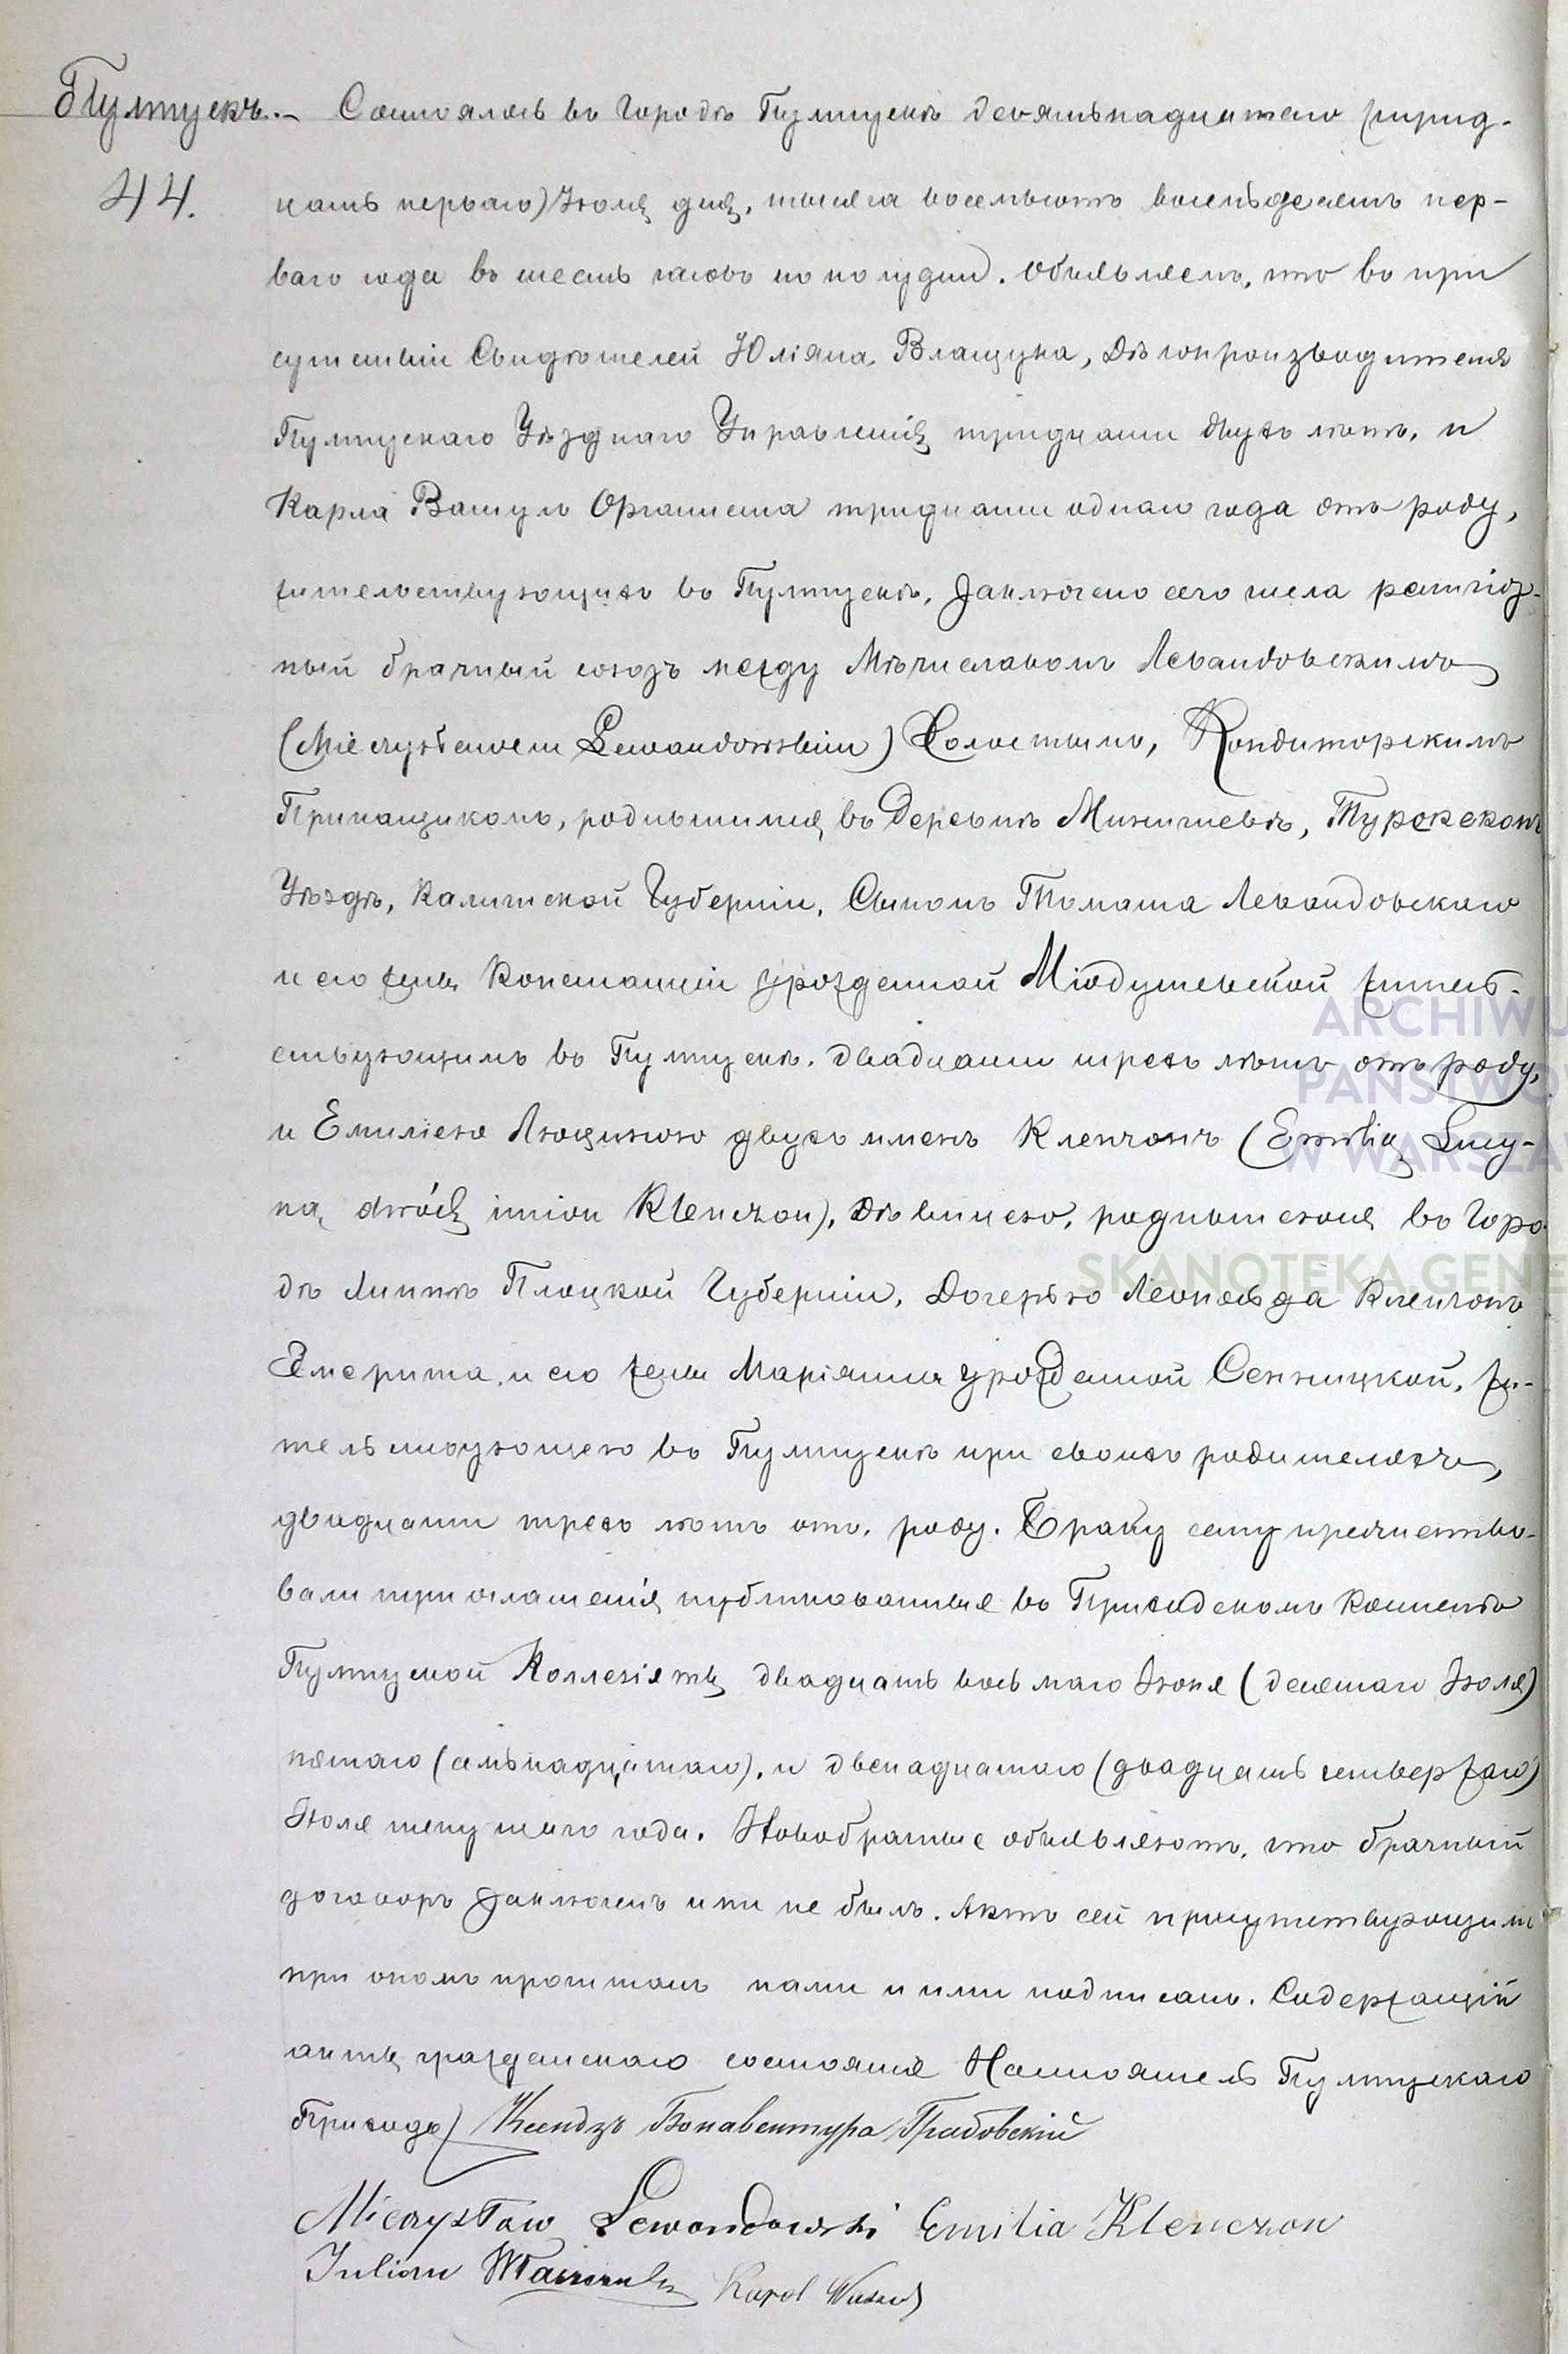 Пултускъ.– Состоялось въ Городѣ Пултускѣ девятьнадцатаго (трид-
44. цать перваго) Іюля дня, тысяча восемьсотъ восемьдесятъ пер-
ваго года въ шесть часовъ по полудни. Объявляемъ, что въ при
сутствіи Свидѣтелей Юліяна Влащука, Дѣлопроизводителя
Пултускаго Уѣзднаго Управленія тридцати двухъ лѣтъ, и
Карла Органиста тридцати одного года отъ роду,
жительствующихъ въ Пултускѣ, Заключено сего числа религіоз-
ный брачный союзъ между Мѣчиславомъ Левандовскимъ
(Mieczysławem Lewandowskim) Холостымъ, Кондиторскимъ
Прикащикомъ, родившимся въ Деревнѣ Турекскомъ
Уѣздѣ, Калишской Губерніи, Сыномъ Томаша Левандовскаго
и его жены Констанціи урожденной Міодушевской житель-
ствующимъ въ Пултускѣ, двадцати трехъ лѣтъ отъ роду,
и Емиліею Люциною двухъ именъ Кленчонъ (Emilią Lucy-
ną dwóch imion Klenczon), Дѣвицею, родившеюся въ Горо-
дѣ Липнѣ Плоцкой Губерніи, Дочерью Леопольда Кленчонъ
Эмерита, и его жены Маріянны урожденной Сенницкой, жи-
тельствующею въ Пултускѣ при своихъ родителяхъ,
двадцати трехъ лѣтъ отъ роду. Браку сему предшество-
вали три оглашенія публикованныя въ Приходскомъ Костелѣ
Пултуской Коллегіяты двадцать восьмаго Іюня (десятаго Іюля)
пятаго (семьнадцатаго), и двенадцатаго (двадцать четвертаго)
Іюля текущаго года. Новобрачные объявляютъ, что брачный
договоръ заключенъ ими не былъ. Актъ сей присутствующимъ
при ономъ прочитанъ нами и ими подписанъ. Содержащій
акты гражданскаго состоянія Настоятель Пултускаго
Прихода Ксендзъ Бонавентура Грабовскій
Mieczysław Lewandowski Emilia Klenczon
Julian Karol